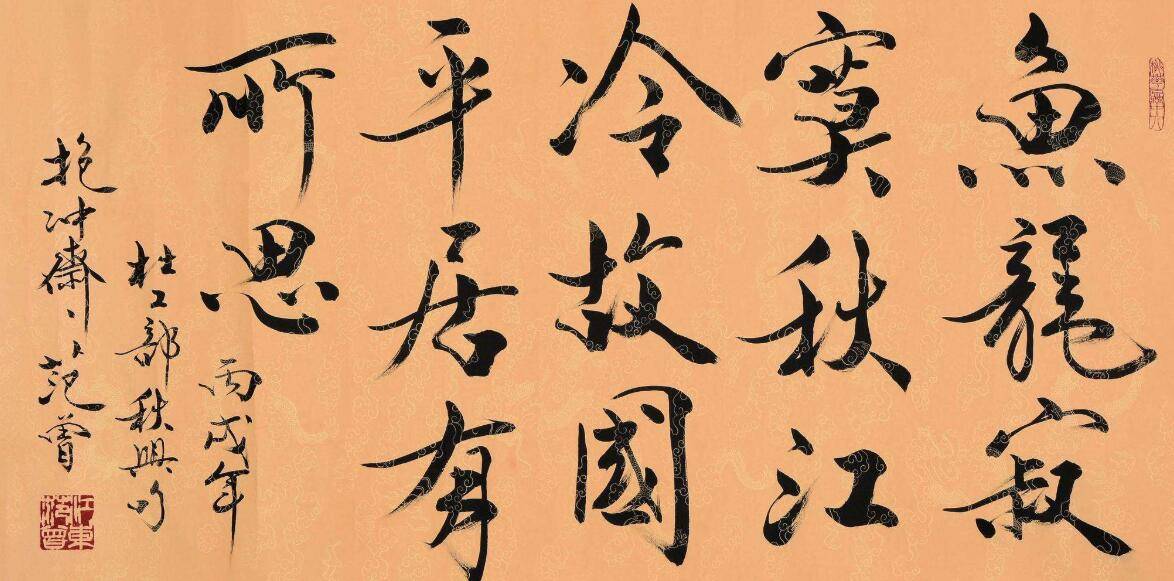 魚龍寂
寞秋江
冷故國
平居有
所思
丙戌年
杜工部秋興句
抱冲齋主范曾
江東范曾